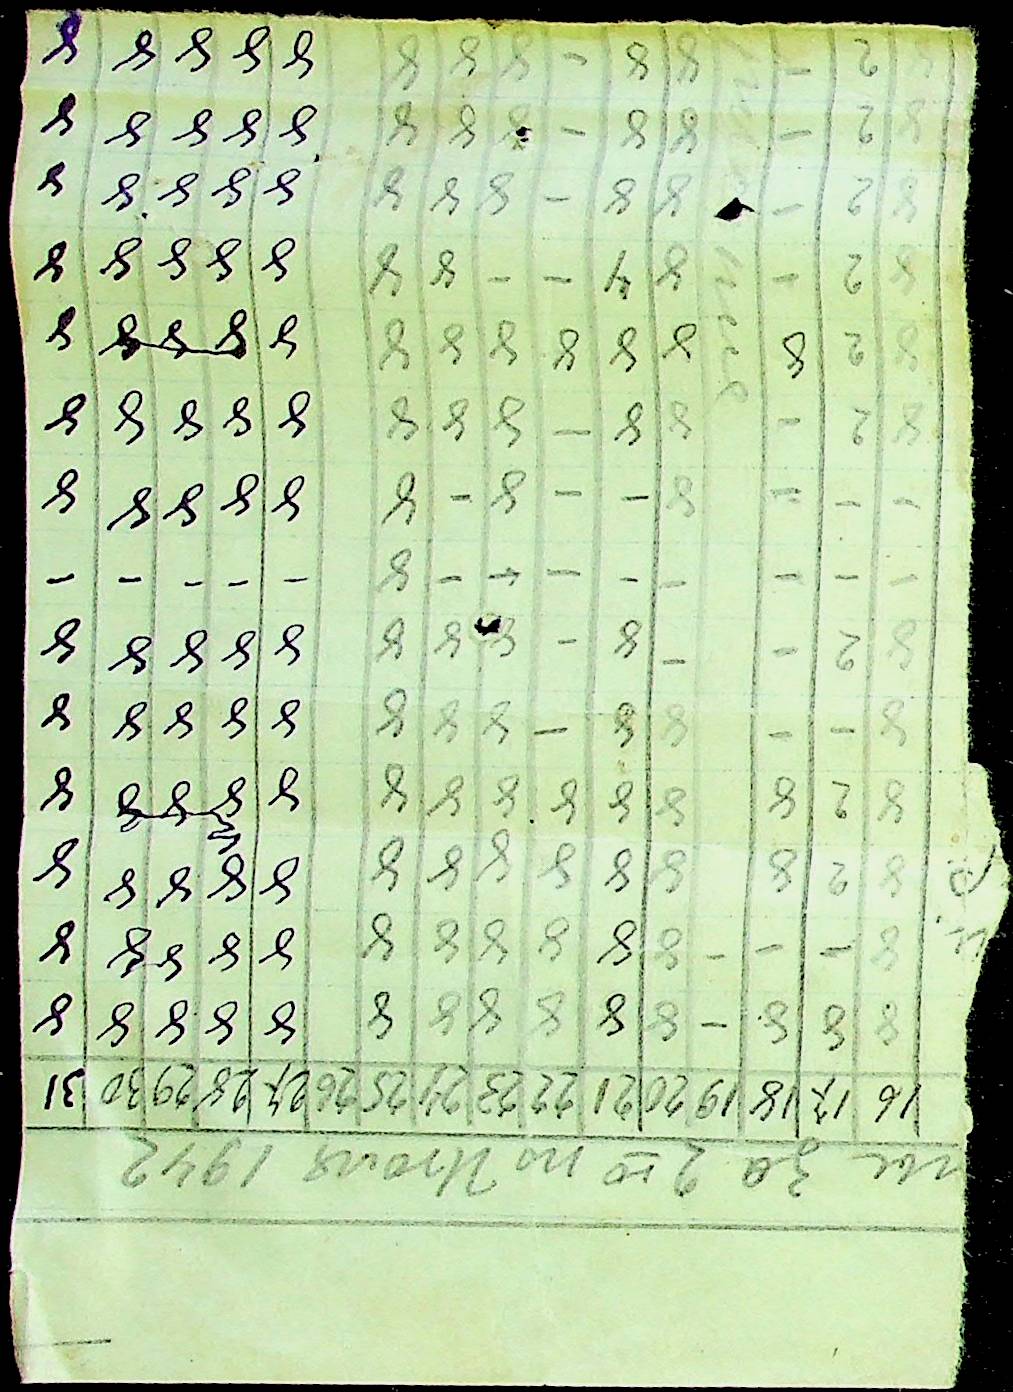 за 2ю по Июля 1942
16 17 18 19 20 21 22 23 24 25 26 27 28 29 30 31
8 8 8 - 8 8 8 8 8 8 8 8 8 8 8
8 - - - 8 8 8 8 8 8 8 8 8 8 8
8 2 8 8 8 8 8 8 8 8 8 8 8 8
8 2 8 8 8 8 8 8 8 8 8 8 8 8
8 - - 8 8 - 8 8 8 8 8 8 8 8
8 2 - - 8 - 8 8 8 8 8 8 8 8
- - - - - - - - 8 - - - - -
- - - 8 - - 8 - 8 8 8 8 8 8
8 2 - 8 8 - 8 8 8 8 8 8 8 8
8 2 8 8 8 8 8 8 8 8 8 8 8 8
8 2 - 8 4 - - 8 8 8 8 8 8 8
8 2 - 8 8 - 8 8 8 8 8 8 8 8
8 2 - 8 8 - 8 8 8 8 8 8 8 8
8 2 - 8 8 - 8 8 8 8 8 8 8 8